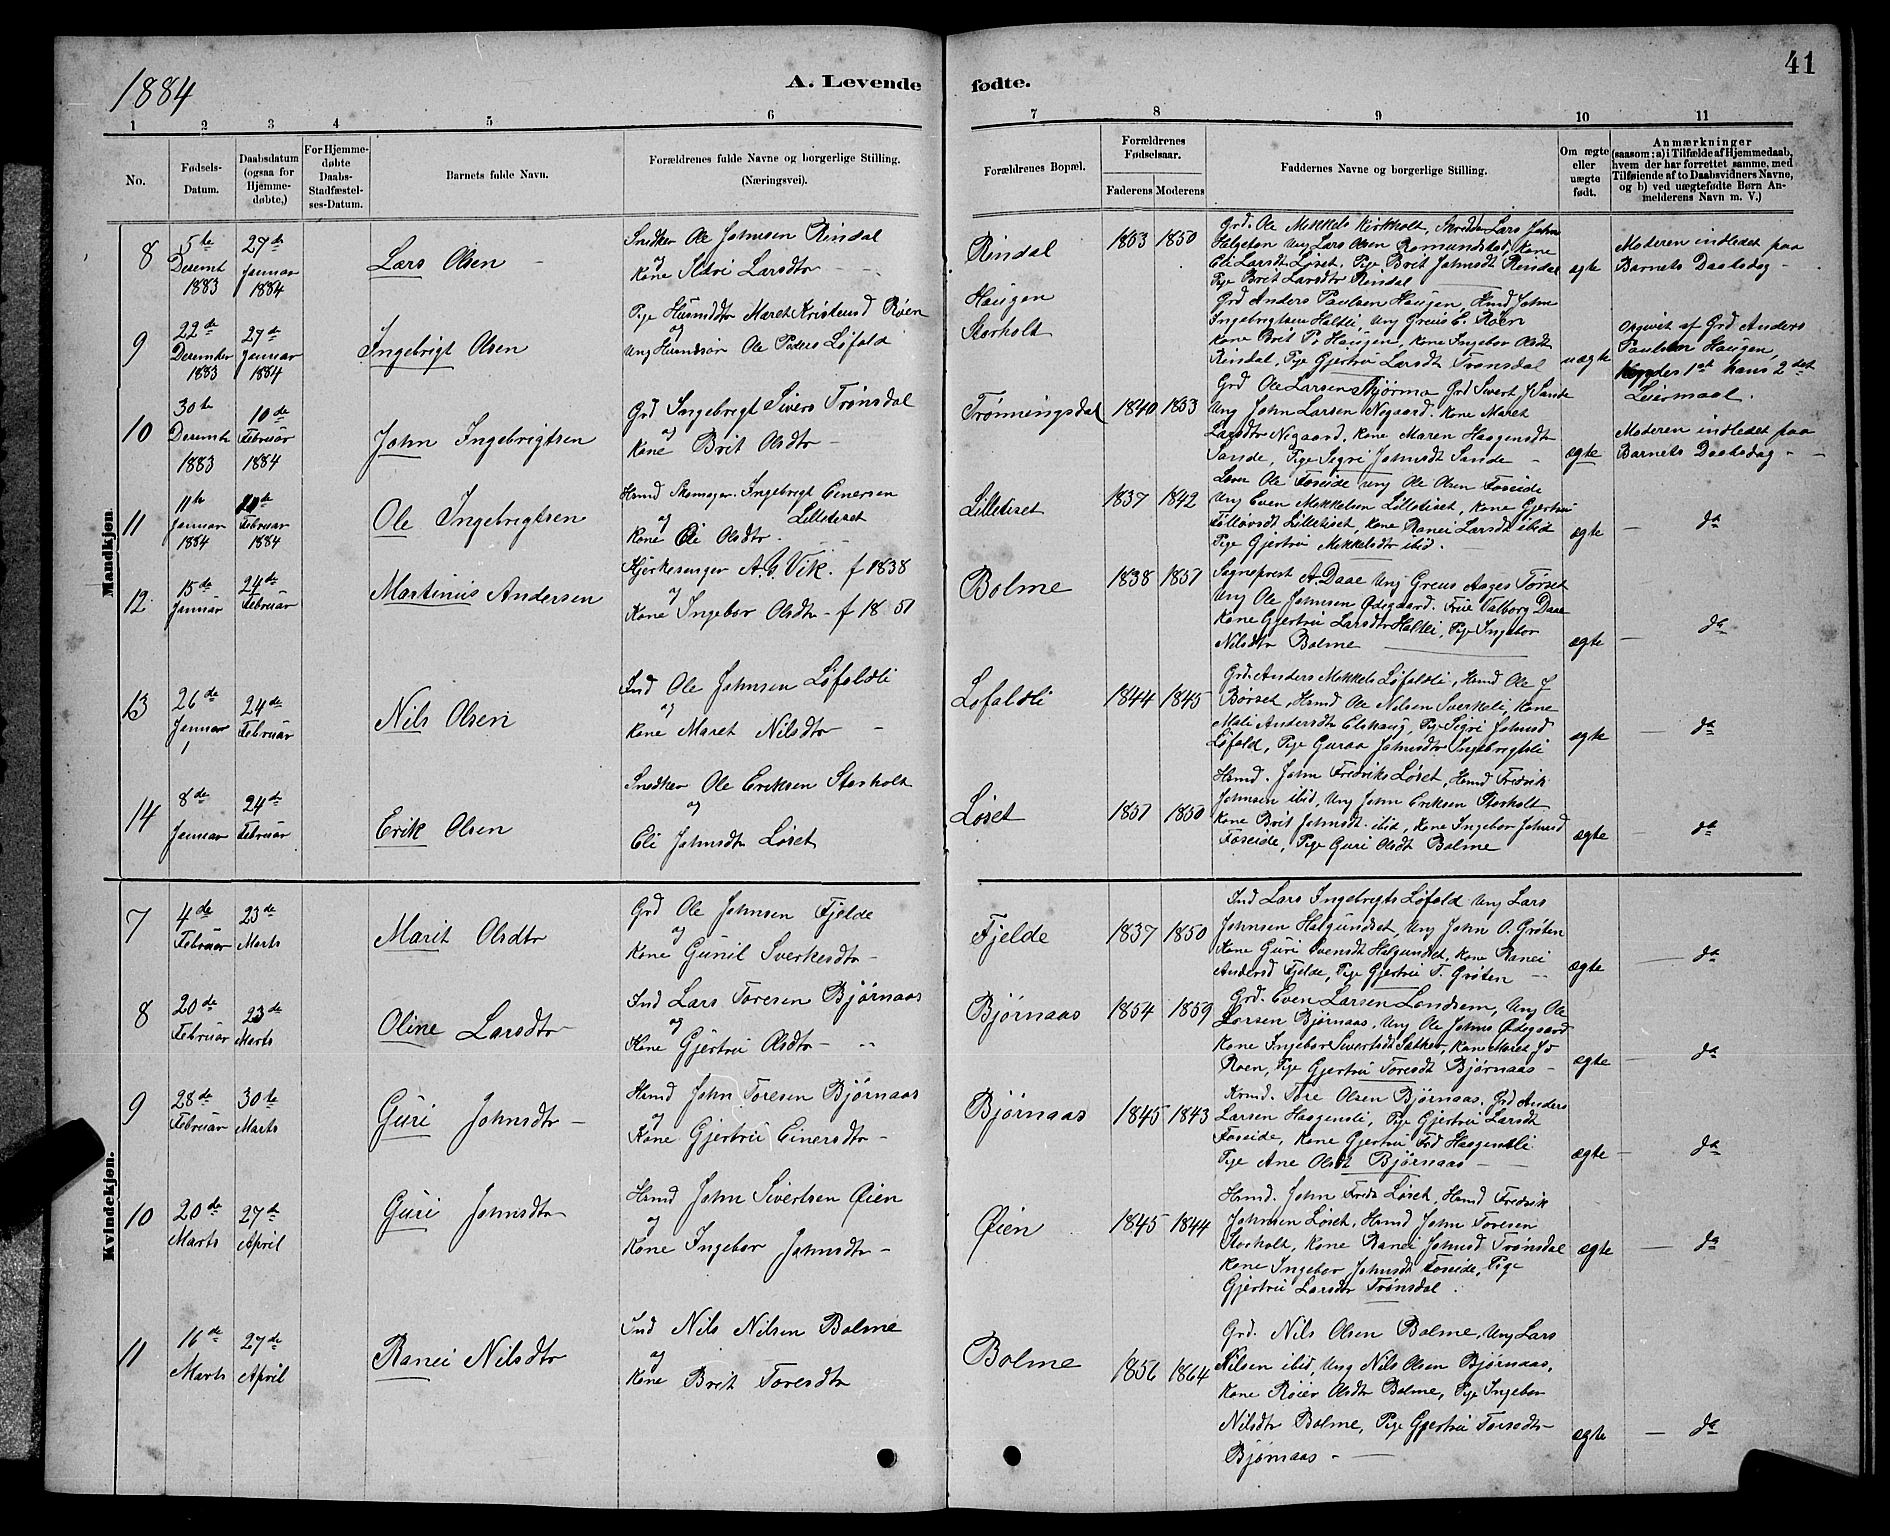 1884
A. Levende
fødte.
41
1 2 3 4 5 6 7 8 9 10 11
No.
Fødsels-
Datum.
Daabsdatum
(ogsaa for
Hjemme-
døbte,)
For Hjemme-
døbte
Daabs-
Stadfæstel-
ses-Datum.
Barnets fulde Navn.
Forældrenes fulde Navne og borgerlige Stilling.
(Næringsvei).
Forældrenes Bopæl.
Forældrenes
Fødselsaar.
Faderens Moderens
Faddernes Navne og borgerlige Stilling.
Om ægte
eller
uægte
født.
Anmærkninger
(saasom: a) i Tilfælde af Hjemmedaab,
hvem der har forrettet samme, med
Tilføiende af to Daabsvidners Navne,
og b) ved uægtefødte Børn An-
melderens Navn m. V.)
Mandkjøn.
8
5te
Decembr
1883
27de
Januar
1884
Lars Olsen
Snedker Ole Johnsen Rindal
og
Kone Sidri Larsdtr
Rindal
1853 1850
Grd. Ole Mekkels Kirkholt, Lars John
Halgeton Ung Lars Olsen Romundstad, Kone
Eli Larsdt Løset, Pige Brit Johnsdt Rindal
Pige Brit Larsdtr Rindal
ægte
Moderen indledet paa
Barnets Daabsdag
9
22de
December
1883
27de
Januar
1884
Ingebrigt Olsen
Pige Husmdtr Maret Kristensd Røen
og
Ung Husmdsøn Ole Peders Løfald
Haugen
Storholt
Grd Anders Paulsen Haugen, Hmd John
Ingebrigtsen Haltli, Ung Greus E. Røen
Kone Brit P. Haugen, Kone Ingebor Olsdt
Rindal, Pige Gjertru Larsdt Trønsdal
uægte
Opgivet af Grd Anders
Paulsen Haugen,
hans 2det
Leiermaal.
10
30te
Decembr
1883
10de
Februar
1884
John Ingebrigtsen
Grd Ingebrigt Sivers Trønsdal
og
Kone Brit Olsdtr
Trønningsdal
1840 1853
Grd Ole Larsen Bjørma Grd Sivert J Sande
Ung John Larsen Negaard. Kone Maret
Larsdtr Negaard, Kone Maren Haagensdtr
Sande, Pige Segri Johnsdt Sande
ægte
Moderen indledet paa
Barnets Daabsdag
11
11te
Januar
1884
Februar
1884
Ole Ingebrigtsen
Hsmd Skomager Ingebrigt Einersen
og Lilletiset
Kone Eli Olsdtr
Lilletiset
1837 1842
Ole Foseide Ung Ole Olsen Foseide
Ung Even Mekkelsen Lilletiset, Kone Gjertru
Lilletiset, Kone Ranei Larsdt ibid
Pige Gjertru Mekkelsdtr ibid.
ægte
do
12
15de
Januar
24de
Februar
Martinus Andersen
Kjerkesanger A. G. Vik. f 1838
og
Kone Ingebor Olsdtr - f 1851
Bolme
1838 1851
Sogneprest A. Daae Ung Greus Aages Tørset
Ung Ole Johnsen Ødegaard. Frue Valborg Daae
Kone Gjertru Larsdtr Haltli, Pige Ingebor
Nilsdtr Bolme
ægte
do
13
26de
Januar
24de
Februar
Nils Olsen
Ind Ole Johnsen Løfaldli
og
Kone Maret Nilsdtr
Løfaldli
1844 1845
Grd. Anders Mekkels Løfaldli, Hsmd Ole J
Børset, Hsmd Ole Nilsen Sverkeli, Kone
Mali Andersdt Elshaug, Pige Sigri Johnsd
Løfald, Pige Guraa Johnsdtr Ingebrigtsli
ægte
do
14
8de
Januar
24de
Februar
Erik Olsen
Snedker Ole Eriksen Storholt
og
Eli Johnsdtr Løset
Løset
1851 1850
Hsmd. John Fredriks Løset, Hsmd Fredrik
Johnsen ibid, Ung John Eriksen Storholt
Kone Brit Johnsdt. ibid, Kone Ingebor Johnsd
Foseide, Pige Guri Olsdt Bolme
ægte
do
Kvindekjøn.
7
4de
Februar
23de
Marts
Marit Olsdtr
Grd Ole Johnsen Fjelde
og
Kone Gunil Sverkesdtr
Fjelde
1837 1850
Ind Lars Ingebrigts Løfald Ung Lars
Johnsen Halgundset, Ung John O. Grøten
Kone Guri Svensdt Halgundset, Kone Ranei
Andersd Fjelde, Pige Gjertru T. Grøten
ægte
do
8
20de
Februar
23de
Marts
Oline Larsdtr
Ind Lars Toresen Bjørnaas
og
Kone Gjertru Olsdtr
Bjørnaas
1854 1859
Grd. Even Larsen Landsem, Ung Ole
Larsen Bjørnaas, Ung Ole Johns Ødegaard
Kone Ingebor Sivertsdt Sæther, Kone Maret
Roen, Pige Gjertru Toresdt Bjørnaas
ægte
do
9
28de
Februar
30te
Marts
Guri Johnsdtr
Hsmd John Toresen Bjørnaas
og
Kone Gjertru Einersdtr
Bjørnaas
1845 1843
Hsmd. Tore Olsen Bjørnaas, Grd Anders
Larsen Haagenli, Pige Gjertru Larsdt
Foseide, Kone Gjertru Haagenli
Pige Ane Olsdt Bjørnaas
ægte
do
10
20de
Marts
27de
April
Guri Johnsdtr
Hsmd John Sivertsen Øien
og
Kone Ingebor Johnsdtr
Øien
1845 1844
Hsmd. John Freds Løset, Hsmd Fredrik
Johnsen Løset, Hsmd John Toresen
Storholt, Kone Ranei Johnsd Trønsdal
Kone Ingebor Johnsdt Foseide, Pige
Gjertru Larsdtr Trønsdal.
ægte
do
11
16de
Marts
27de
April
Ranei Nilsdtr
Ind Nils Nilsen Bolme
og
Kone Brit Toresdtr
Bolme
1856 1864
Grd. Nils Olsen Bolme, Ung Lars
Nilsen ibid, Ung Nils Olsen Bjørnaas,
Kone Røier Olsdtr Bolme, Pige Ingebor
Nilsdtr Bolme, Pige Gjertru Toresdtr
Bjørnaas
ægte
do